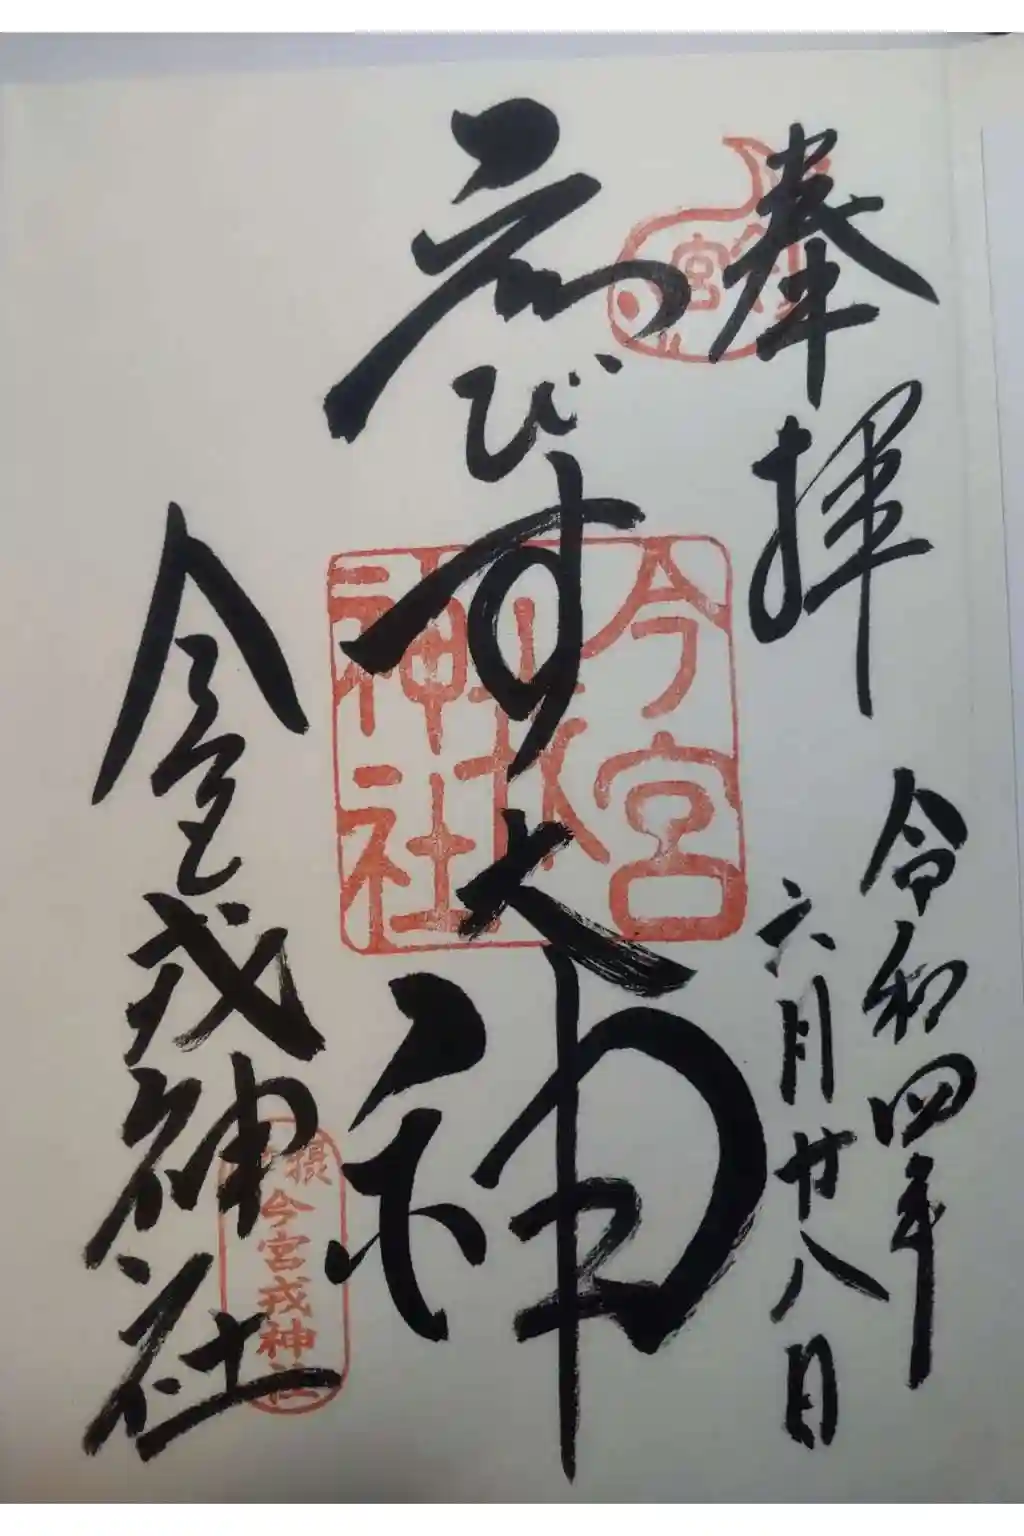 奉拝
令和四年
六月廿八日
ゑびす大神
今宮戎神社
今宮
戎
神社
今宮
摂
今宮戎神社